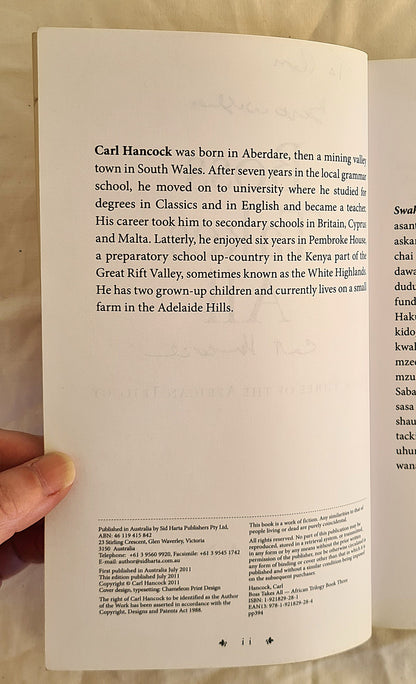 Carl Hancock was born in Aberdare, then a mining valley
town in South Wales. After seven years in the local grammar
school, he moved on to university where he studied for
degrees in Classics and in English and became a teacher.
His career took him to secondary schools in Britain, Cyprus
and Malta. Latterly, he enjoyed six years in Pembroke House,
a preparatory school up-country in the Kenya part of the
Great Rift Valley, sometimes known as the White Highlands.
He has two grown-up children and currently lives on a small
farm in the Adelaide Hills.
Published in Australia by Sid Harta Publishers Pty Ltd,
ABN: 46 119 415 842
23 Stirling Crescent, Glen Waverley, Victoria
3150 Australia
Telephone: +61 3 9560 9920, Facsimile: +61 3 9545 1742
E-mail: author@sidharta.com.au
First published in Australia July 2011
This edition published July 2011
Copyright © Carl Hancock 2011
Cover design, typesetting: Chameleon Print Design
The right of Carl Hancock to be identified as the Author
of the Work has been asserted in accordance with the
Copyright, Designs and Patents Act 1988.
This book is a work of fiction. Any similarities to that of
people living or dead are purely coincidental.
All rights reserved. No part of this publication may be
reproduced, stored in a retrieval system, or transmitted,
in any form or by any means without the prior written
permission of the publisher, nor be otherwise circulated in
any form of binding or cover other than that in which it is
published and without a similar condition being imposed
on the subsequent purchaser.
Hancock, Carl
Boss Takes All — African Trilogy Book Three
ISBN: 1-921829-28-1
EAN13: 978-1-921829-28-4
pp394
ii
Swah
asant
askar
chai
dawa
dudu
fund
Haku
kido
kwah
mzee
mzu
Saba
sasa
shau
tack
uhur
wana